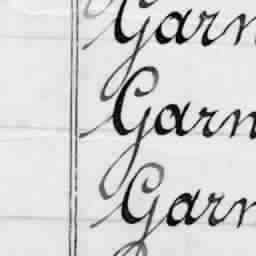 Garn
Garn
Garn